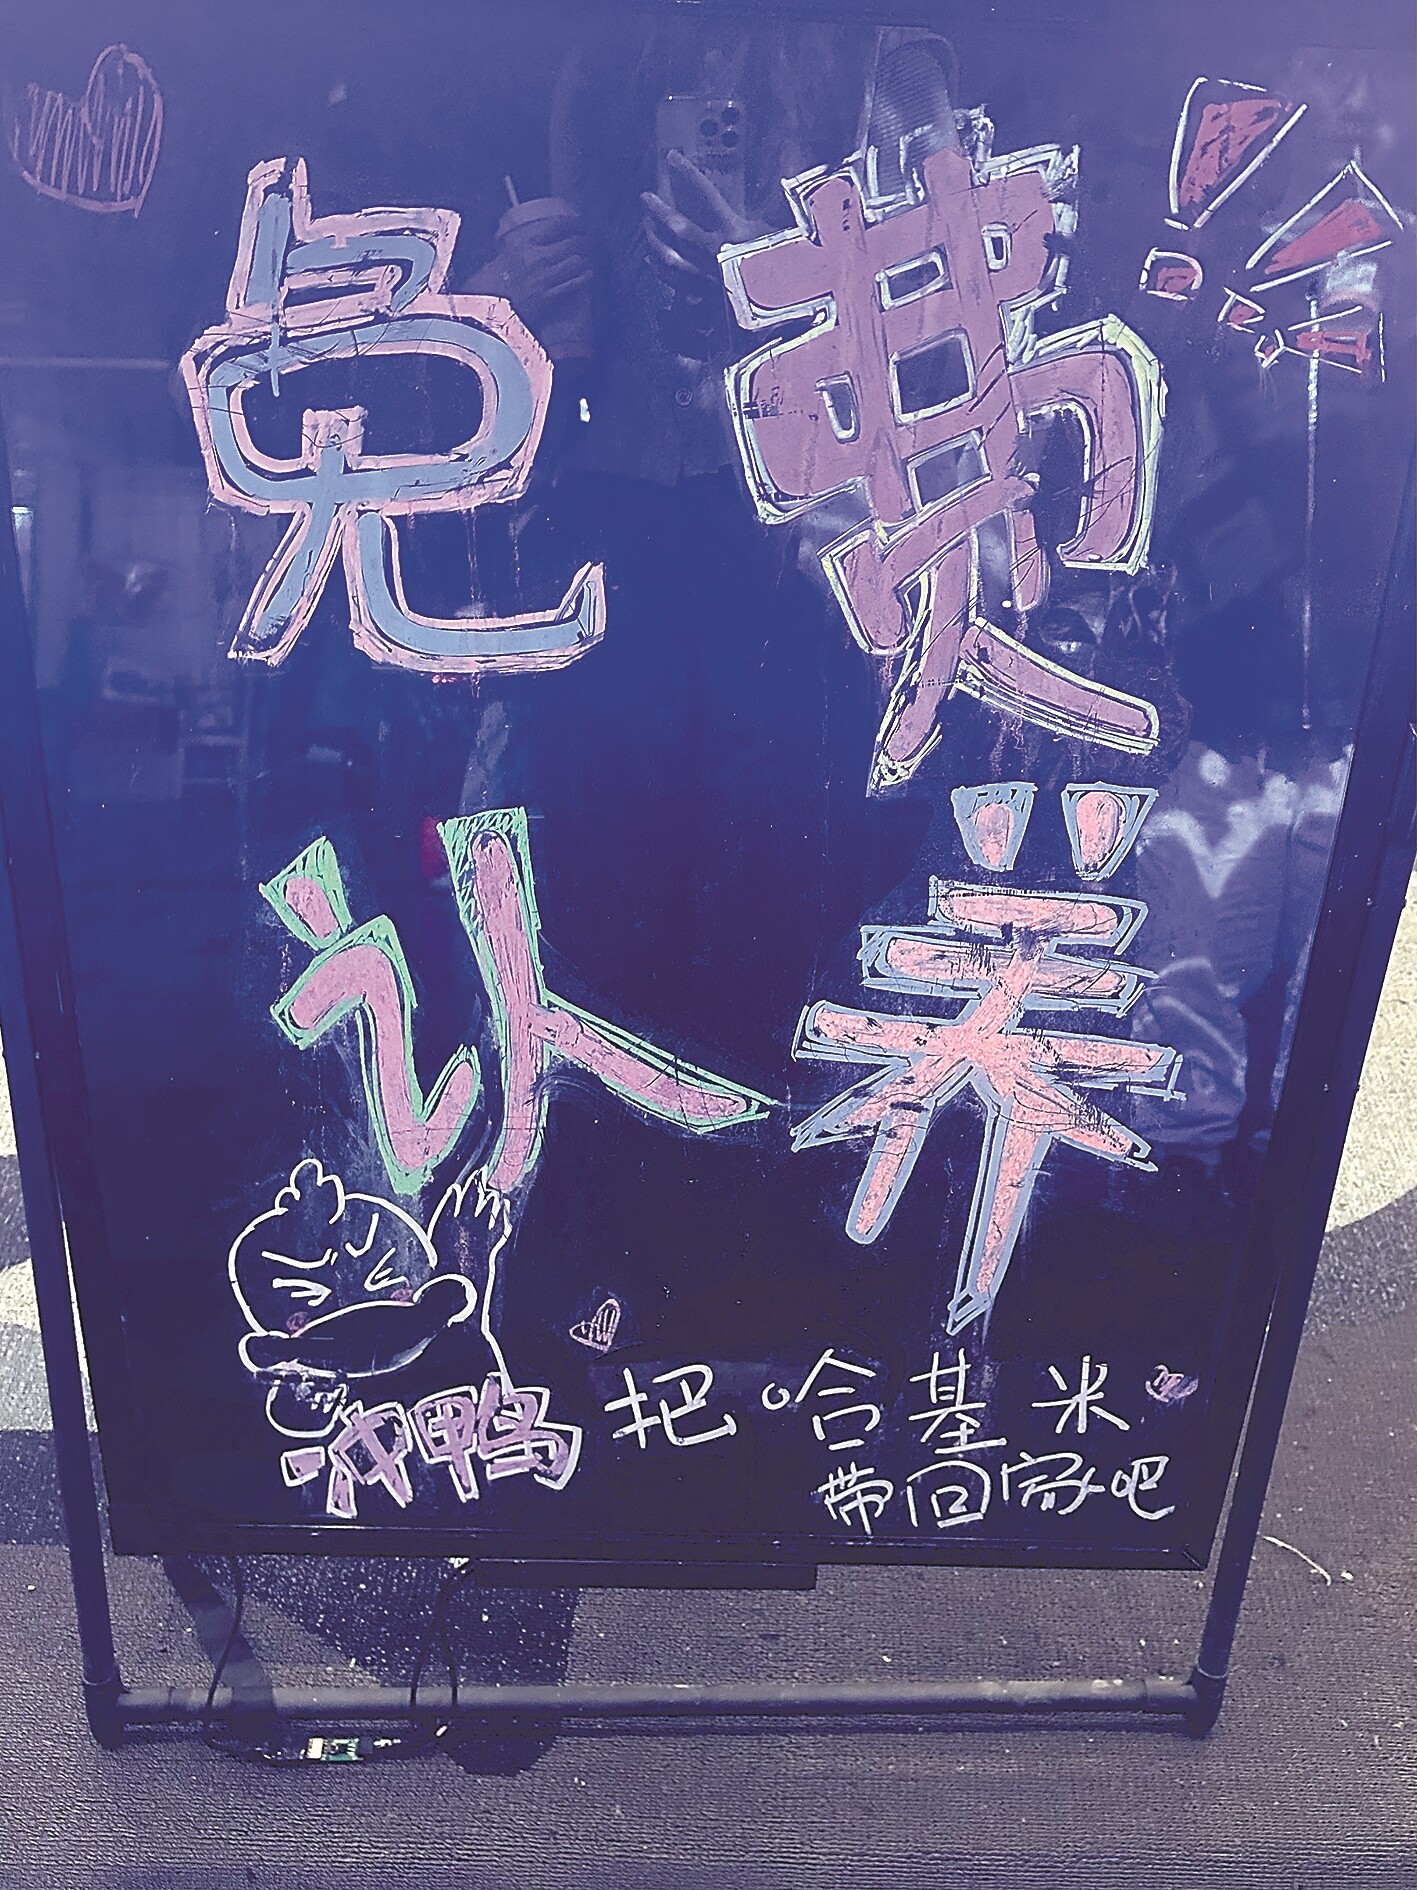 免费
认养
鸭
把哈基米
带回家吧